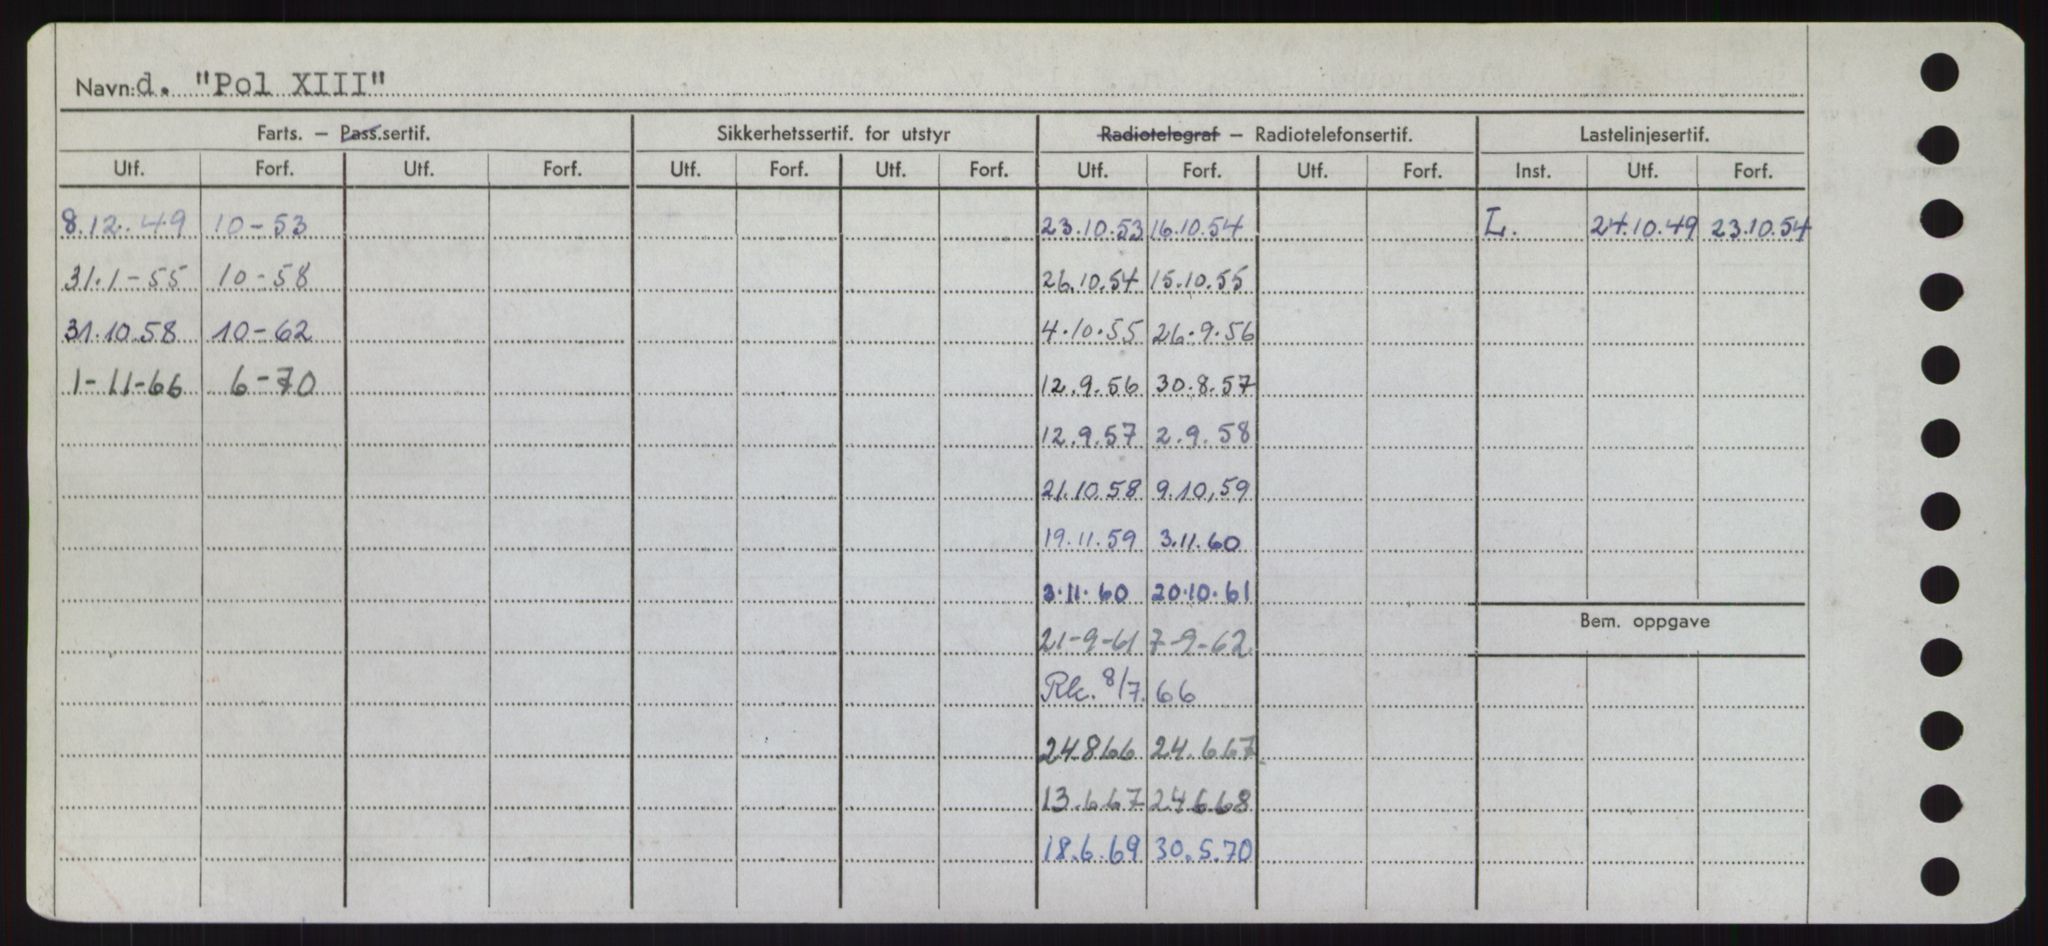 Navn: d. "Pol XIII"
Farts. – Pass.sertif. Sikkerhetssertif. for utstyr Radiotelegraf – Radiotelefonsertif. Lastelinjesertif.
Utf. Forf. Utf. Forf. Utf. Forf. Utf. Forf. Utf. Forf. Utf. Forf. Inst. Utf. Forf.
8.12.49 10-53 23.10.53 16.10.54 L. 24.10.49 23.10.54
31.1-55 10-58 26.10.54 15.10.55
31.10.58 10-62 4.10.55 26.9.56
1-11-66 6-70 12.9.56 30.8.57
12.9.57 2.9.58
21.10.58 9.10.59
19.11.59 3.11.60
3.11.60 20.10.61
Bem. oppgave
21-9-61 7-9-62
Rk. 8/7.66
24.8.66 24.6.67
13.6.67 24.6.68
18.6.69 30.5.70